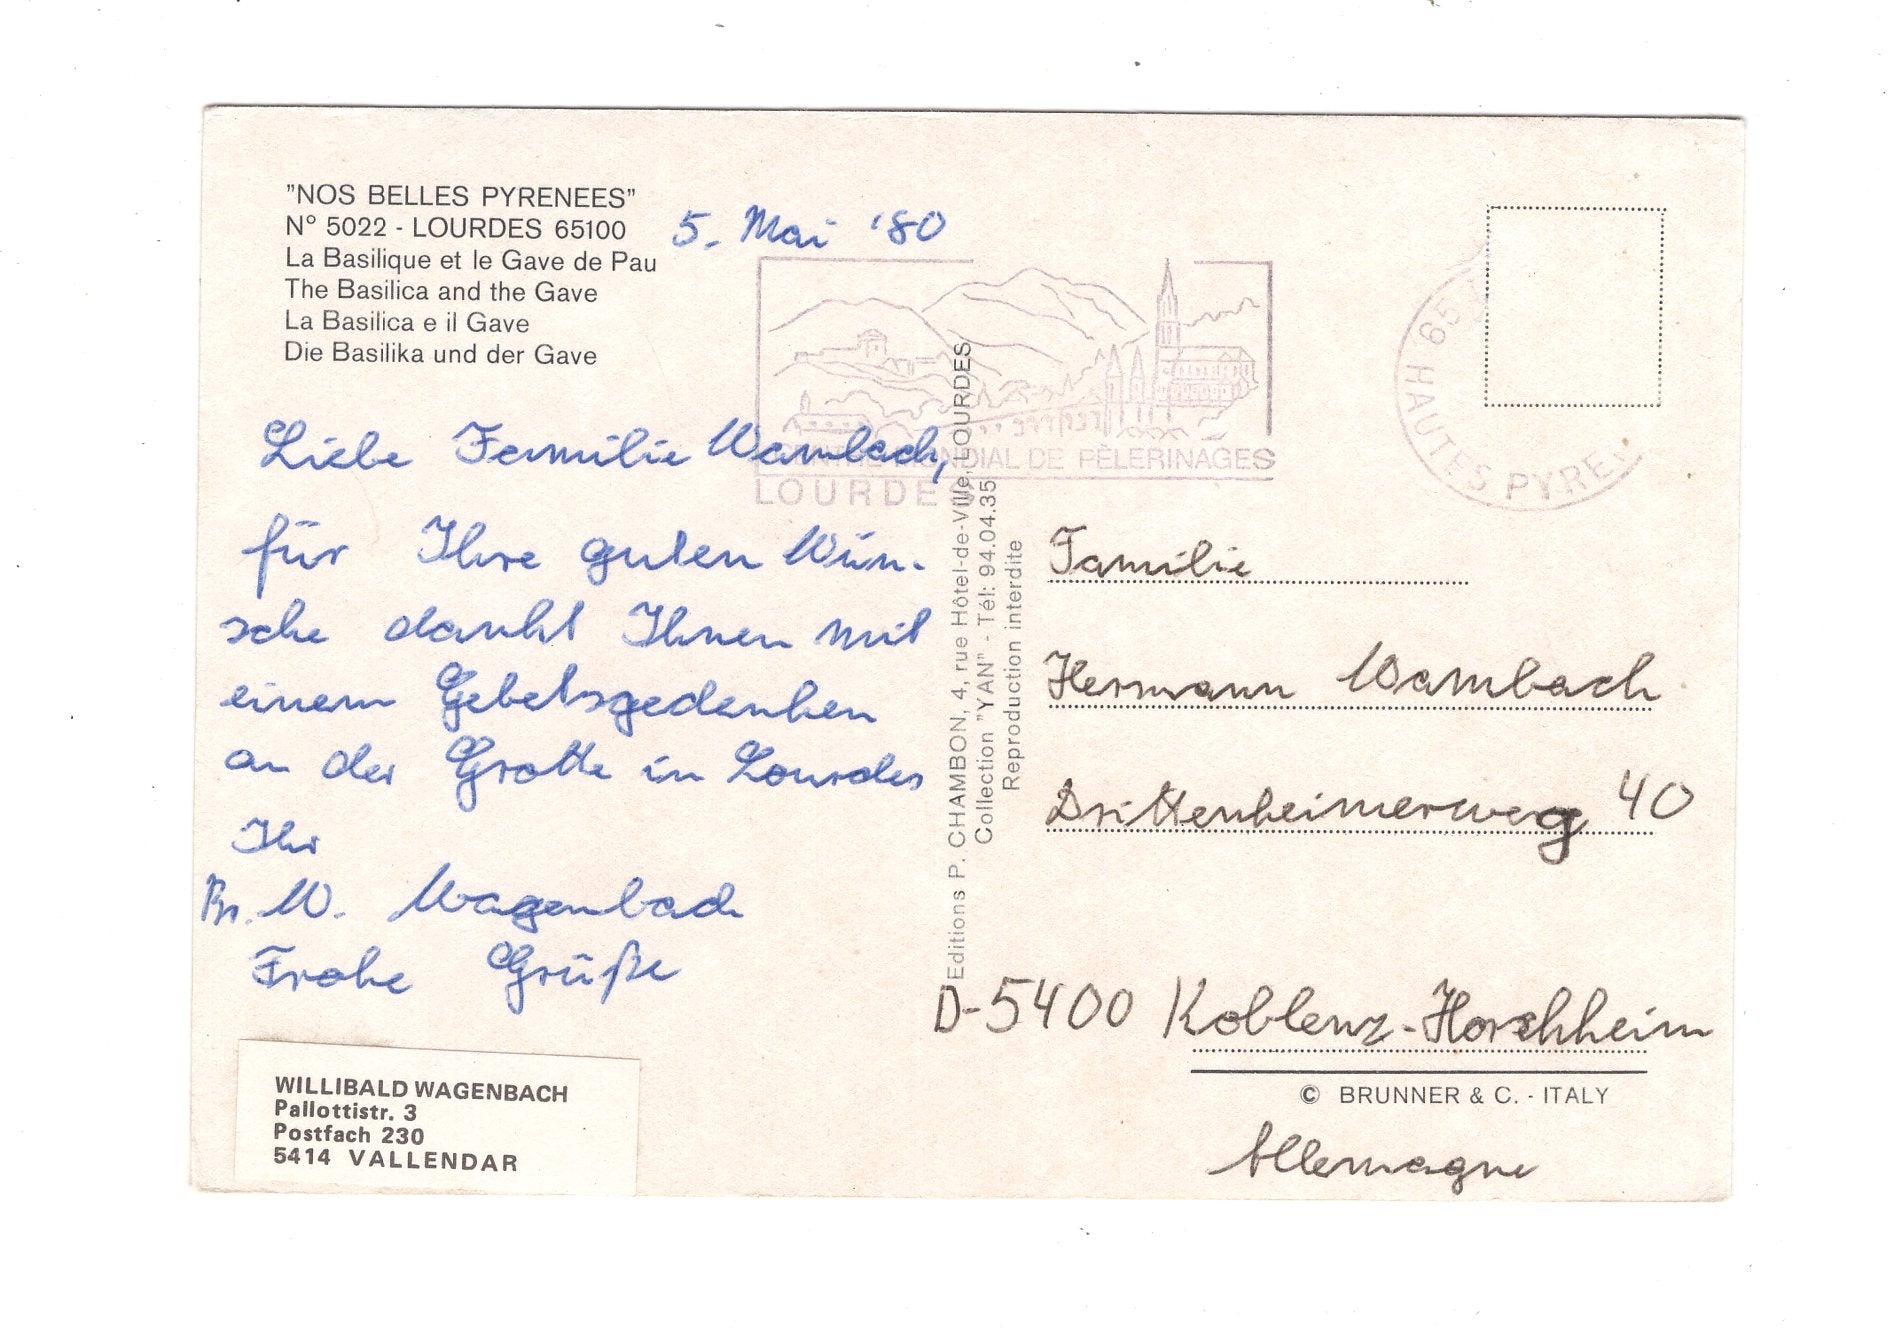 "NOS BELLES PYRENEES"
N° 5022 - LOURDES 65100
La Basilique et le Gave de Pau
The Basilica and the Gave
La Basilica e il Gave
Die Basilika und der Gave
5. Mai '80
CENTRE MONDIAL DE PÈLERINAGES
LOURDES
65
HAUTES PYRE
Liebe Familie Wambach,
für Ihre guten Wün-
sche dankt Ihnen mit
einem Gebetsgedenken
an der Grotte in Lourdes
Ihr
Br. W. Wagenbach
Frohe Grüße
WILLIBALD WAGENBACH
Pallottistr. 3
Postfach 230
5414 VALLENDAR
Editions P. CHAMBON, 4, rue Hôtel-de-Ville, LOURDES
Collection "YAN" - Tél: 94.04.35
Reproduction interdite
Familie
Hermann Wambach
Drittenheimerweg 40
D-5400 Koblenz-Horchheim
© BRUNNER & C. - ITALY
Allemagne